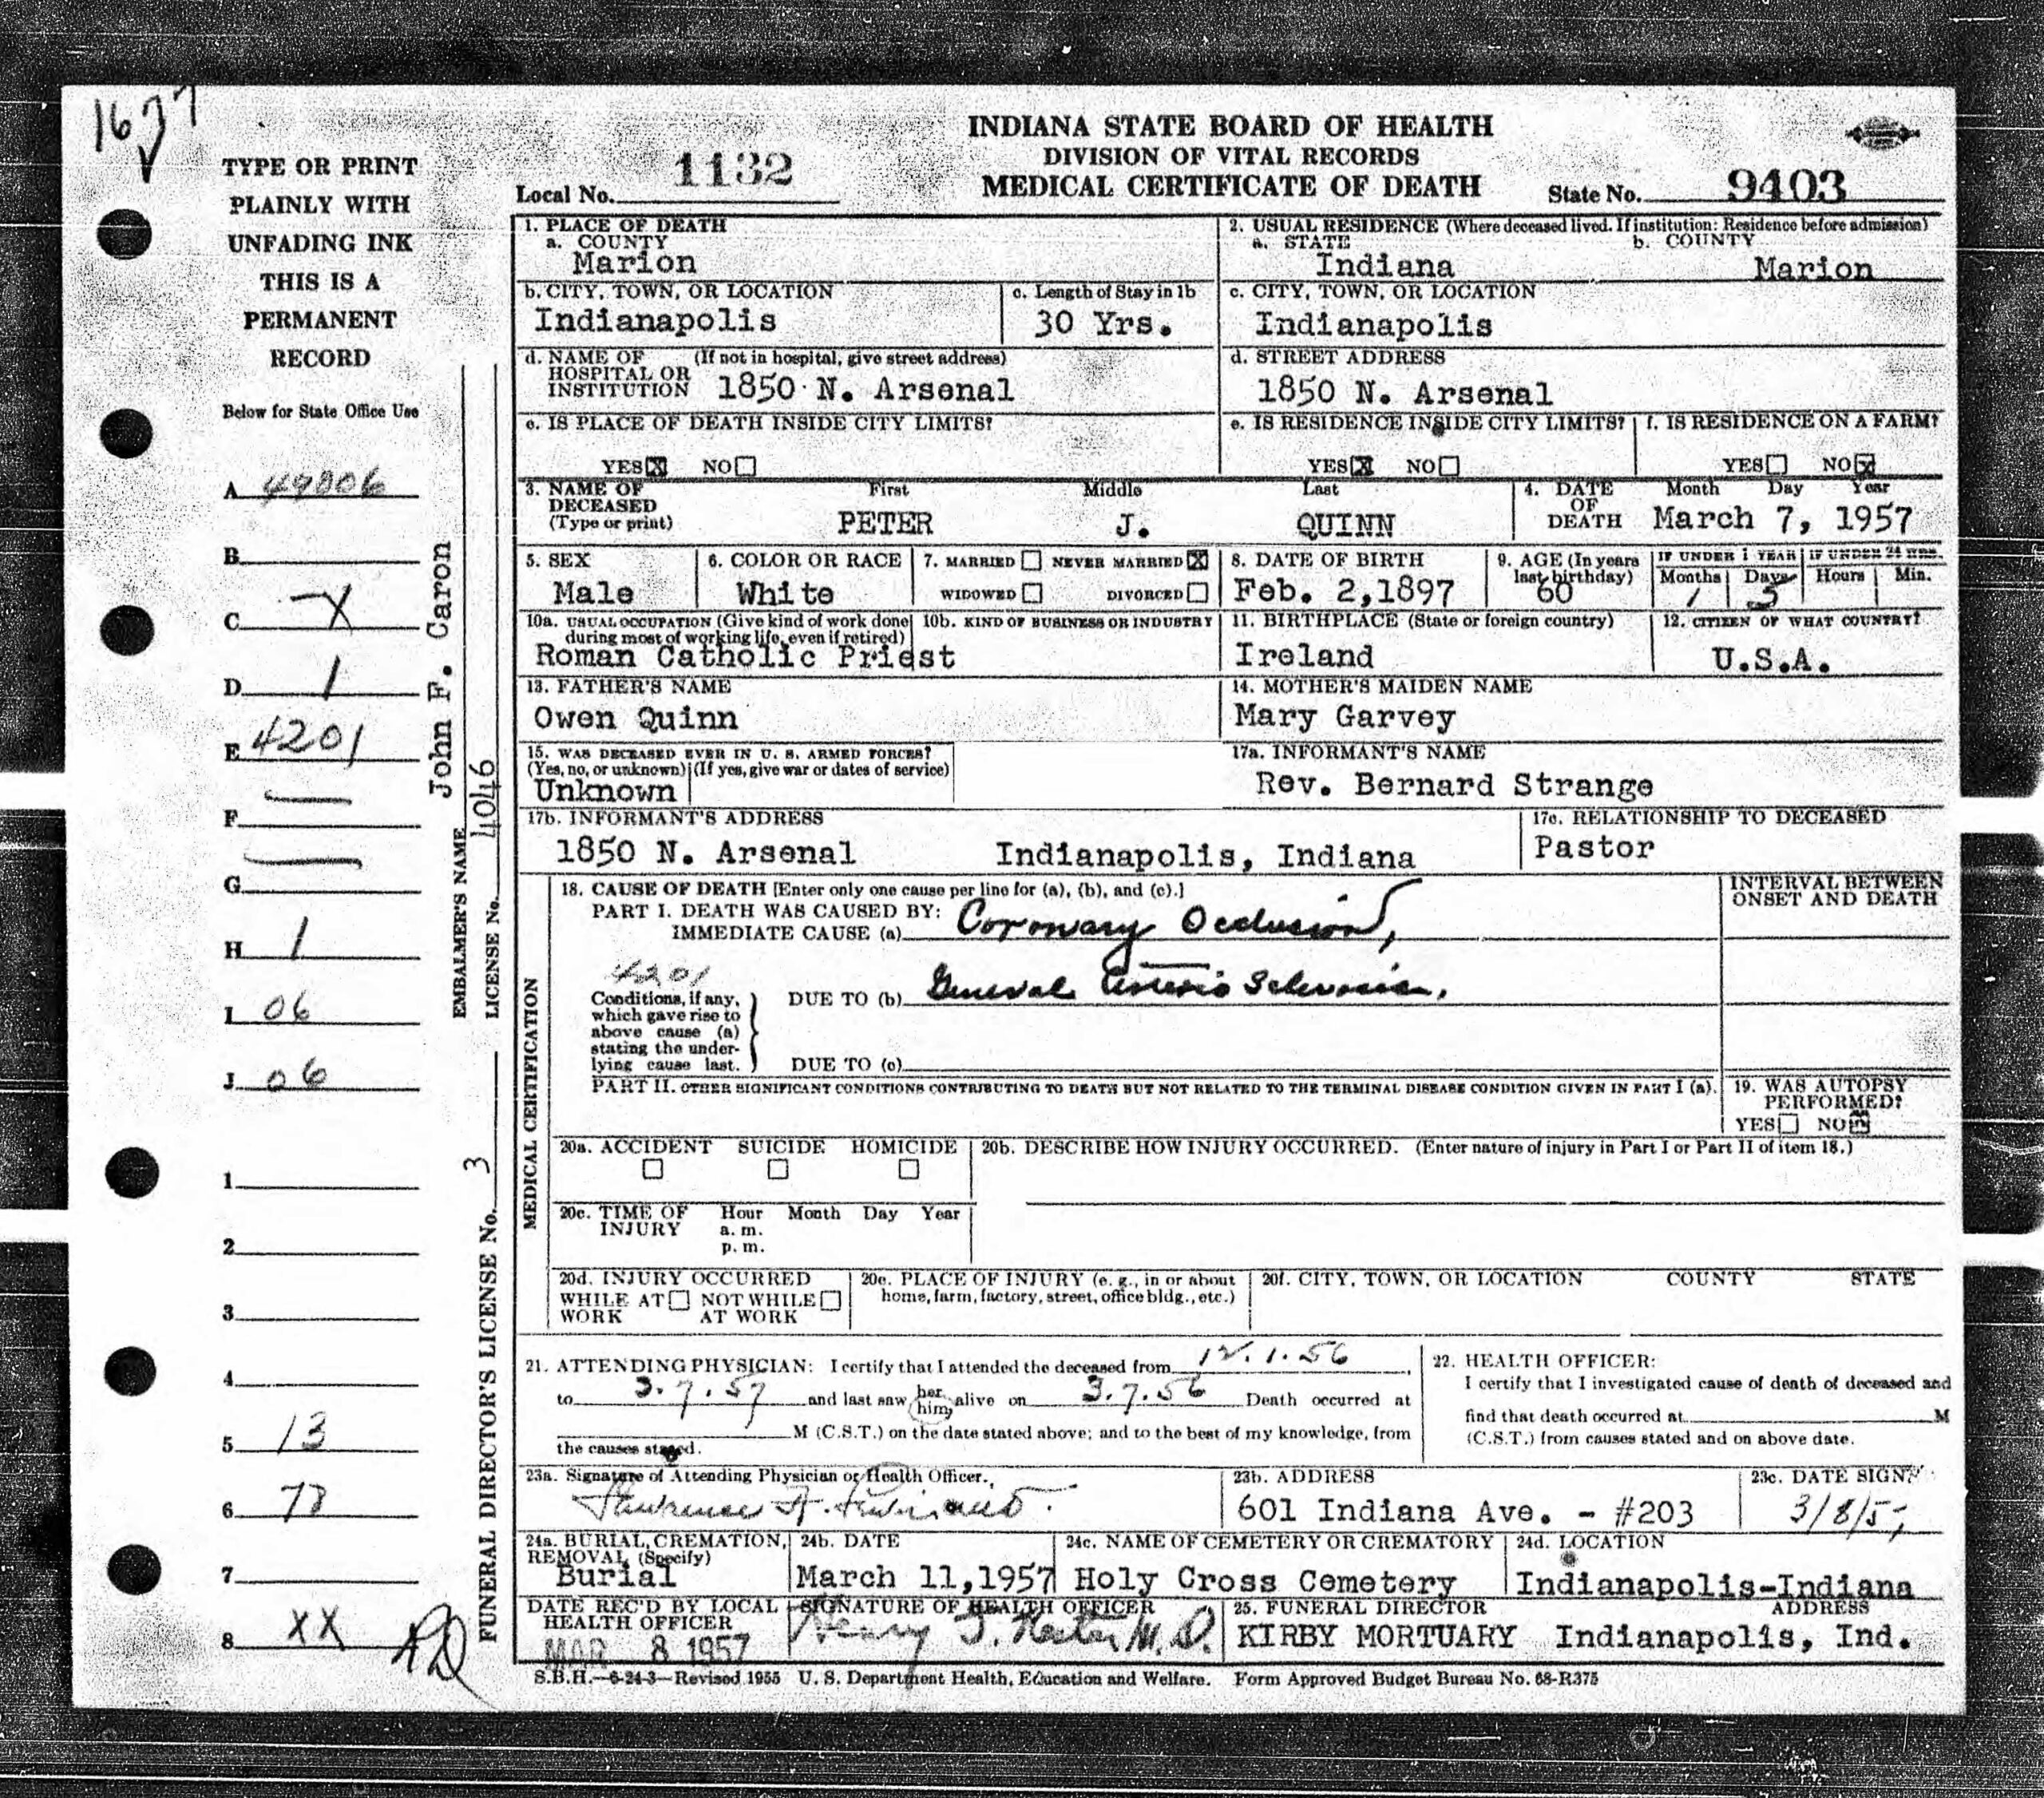 1637
INDIANA STATE BOARD OF HEALTH
DIVISION OF VITAL RECORDS
MEDICAL CERTIFICATE OF DEATH
Local No. 1132
State No. 9403
TYPE OR PRINT
PLAINLY WITH
UNFADING INK
THIS IS A
PERMANENT
RECORD
Below for State Office Use
A
B
C X
D 1
E 4201
F —
G —
H 1
I 06
J 06
1
2
3
4
5 13
6
7
8 XX
John F. Caron
EMBALMER'S NAME
LICENSE No. 4046
FUNERAL DIRECTOR'S LICENSE No. 3
1. PLACE OF DEATH
a. COUNTY
Marion
2. USUAL RESIDENCE (Where deceased lived. If institution: Residence before admission)
a. STATE b. COUNTY
Indiana Marion
b. CITY, TOWN, OR LOCATION
Indianapolis
c. Length of Stay in 1b
30 Yrs.
c. CITY, TOWN, OR LOCATION
Indianapolis
d. NAME OF (If not in hospital, give street address)
HOSPITAL OR
INSTITUTION 1850 N. Arsenal
d. STREET ADDRESS
1850 N. Arsenal
e. IS PLACE OF DEATH INSIDE CITY LIMITS?
YES X NO
e. IS RESIDENCE INSIDE CITY LIMITS?
YES X NO
f. IS RESIDENCE ON A FARM?
YES NO X
3. NAME OF DECEASED (Type or print)
First Middle Last
PETER J. QUINN
4. DATE OF DEATH
Month Day Year
March 7, 1957
5. SEX
Male
6. COLOR OR RACE
White
7. MARRIED NEVER MARRIED X
WIDOWED DIVORCED
8. DATE OF BIRTH
Feb. 2,1897
9. AGE (In years last birthday)
60
IF UNDER 1 YEAR
Months Days
1 5
IF UNDER 24 HRS.
Hours Min.
10a. USUAL OCCUPATION (Give kind of work done
during most of working life, even if retired)
10b. KIND OF BUSINESS OR INDUSTRY
Roman Catholic Priest
11. BIRTHPLACE (State or foreign country)
Ireland
12. CITIZEN OF WHAT COUNTRY?
U.S.A.
13. FATHER'S NAME
Owen Quinn
14. MOTHER'S MAIDEN NAME
Mary Garvey
15. WAS DECEASED EVER IN U. S. ARMED FORCES?
(Yes, no, or unknown) (If yes, give war or dates of service)
Unknown
17a. INFORMANT'S NAME
Rev. Bernard Strange
17b. INFORMANT'S ADDRESS
1850 N. Arsenal Indianapolis, Indiana
17c. RELATIONSHIP TO DECEASED
Pastor
MEDICAL CERTIFICATION
18. CAUSE OF DEATH [Enter only one cause per line for (a), (b), and (c).]
PART I. DEATH WAS CAUSED BY:
IMMEDIATE CAUSE (a) Coronary Occlusion,
INTERVAL BETWEEN
ONSET AND DEATH
4201
Conditions, if any,
which gave rise to
above cause (a)
stating the under-
lying cause last.
DUE TO (b) General Arterio Sclerosis.
DUE TO (c)
PART II. OTHER SIGNIFICANT CONDITIONS CONTRIBUTING TO DEATH BUT NOT RELATED TO THE TERMINAL DISEASE CONDITION GIVEN IN PART I (a).
19. WAS AUTOPSY
PERFORMED?
YES NO X
20a. ACCIDENT SUICIDE HOMICIDE
20b. DESCRIBE HOW INJURY OCCURRED. (Enter nature of injury in Part I or Part II of item 18.)
20c. TIME OF INJURY
Hour Month Day Year
a. m.
p. m.
20d. INJURY OCCURRED
WHILE AT WORK NOT WHILE AT WORK
20e. PLACE OF INJURY (e. g., in or about
home, farm, factory, street, office bldg., etc.)
20f. CITY, TOWN, OR LOCATION COUNTY STATE
21. ATTENDING PHYSICIAN: I certify that I attended the deceased from 12.1.56,
to 3.7.57 and last saw her him alive on 3.7.56 Death occurred at
M (C.S.T.) on the date stated above; and to the best of my knowledge, from
the causes stated.
22. HEALTH OFFICER:
I certify that I investigated cause of death of deceased and
find that death occurred at M
(C.S.T.) from causes stated and on above date.
23a. Signature of Attending Physician or Health Officer.
23b. ADDRESS
601 Indiana Ave. - #203
23c. DATE SIGN
3/8/57
24a. BURIAL, CREMATION,
REMOVAL (Specify)
Burial
24b. DATE
March 11,1957
24c. NAME OF CEMETERY OR CREMATORY
Holy Cross Cemetery
24d. LOCATION
Indianapolis-Indiana
DATE REC'D BY LOCAL
HEALTH OFFICER
MAR 8 1957
SIGNATURE OF HEALTH OFFICER
Henry M.D.
25. FUNERAL DIRECTOR ADDRESS
KIRBY MORTUARY Indianapolis, Ind.
S.B.H.—6-24-3—Revised 1955 U. S. Department Health, Education and Welfare. Form Approved Budget Bureau No. 68-R375